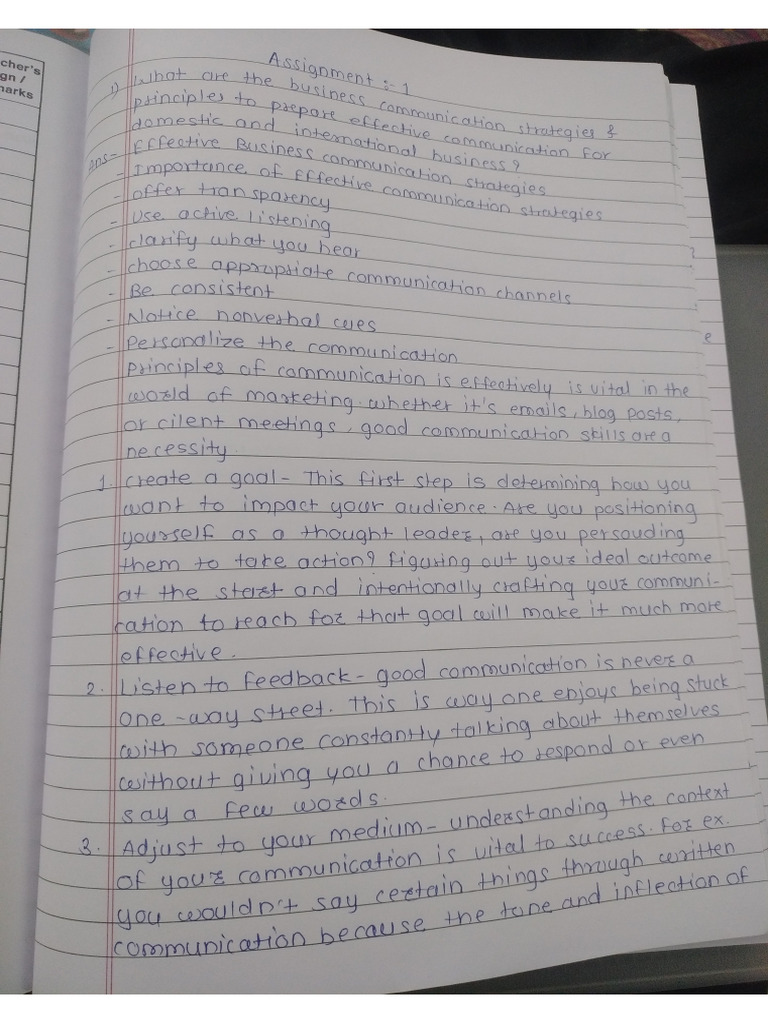 cher's
gn /
narks
Assignment :- 1
1) What are the business communication strategies &
principles to prepare effective communication for
domestic and international business?
Ans- Effective Business communication strategies
- Importance of Effective communication strategies
- offer transparency
- Use active listening
- clarify what you hear
- choose appropriate communication channels
- Be consistent
- Notice nonverbal cues
- Personalize the communication
principles of communication is effectively is vital in the
world of marketing. whether it's emails, blog posts,
or cilent meetings, good communication skills are a
necessity.
1. create a goal - This first step is determining how you
want to impact your audience. Are you positioning
yourself as a thought leader, are you persouding
them to take action? figuring out your ideal outcome
at the start and intentionally crafting your communi-
cation to reach for that goal will make it much more
effective.
2. Listen to feedback - good communication is never a
one-way street. This is way one enjoys being stuck
with someone constantly talking about themselves
without giving you a chance to respond or even
say a few words.
3. Adjust to your medium - understanding the context
of your communication is vital to success. For ex.
you wouldn't say certain things through written
communication because the tone and inflection of